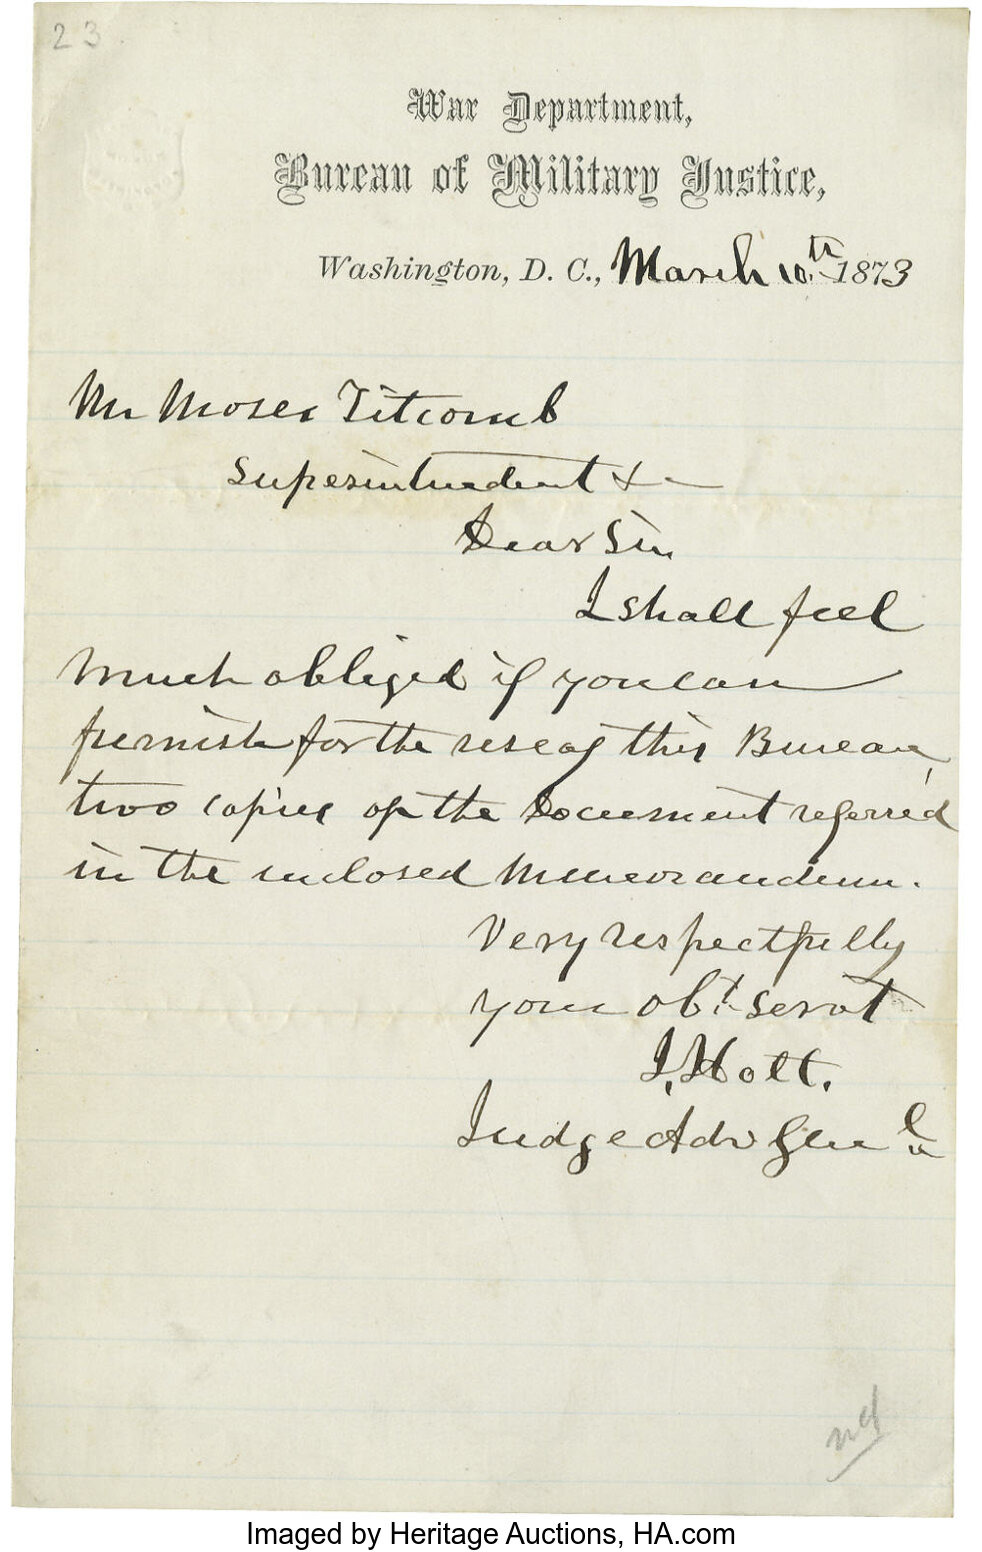 23
War Department,
Bureau of Military Justice,
Washington, D. C., March 10th 1873
Mr Moses Titcomb
Superintendent &-
Dear Sir
I shall feel
much obliged if you can
furnish for the use of this Bureau,
two copies of the Document referred
in the enclosed Memorandum.
Very respectfully
your obt servt
J. Holt.
Judge Adv Genl
Imaged by Heritage Auctions, HA.com